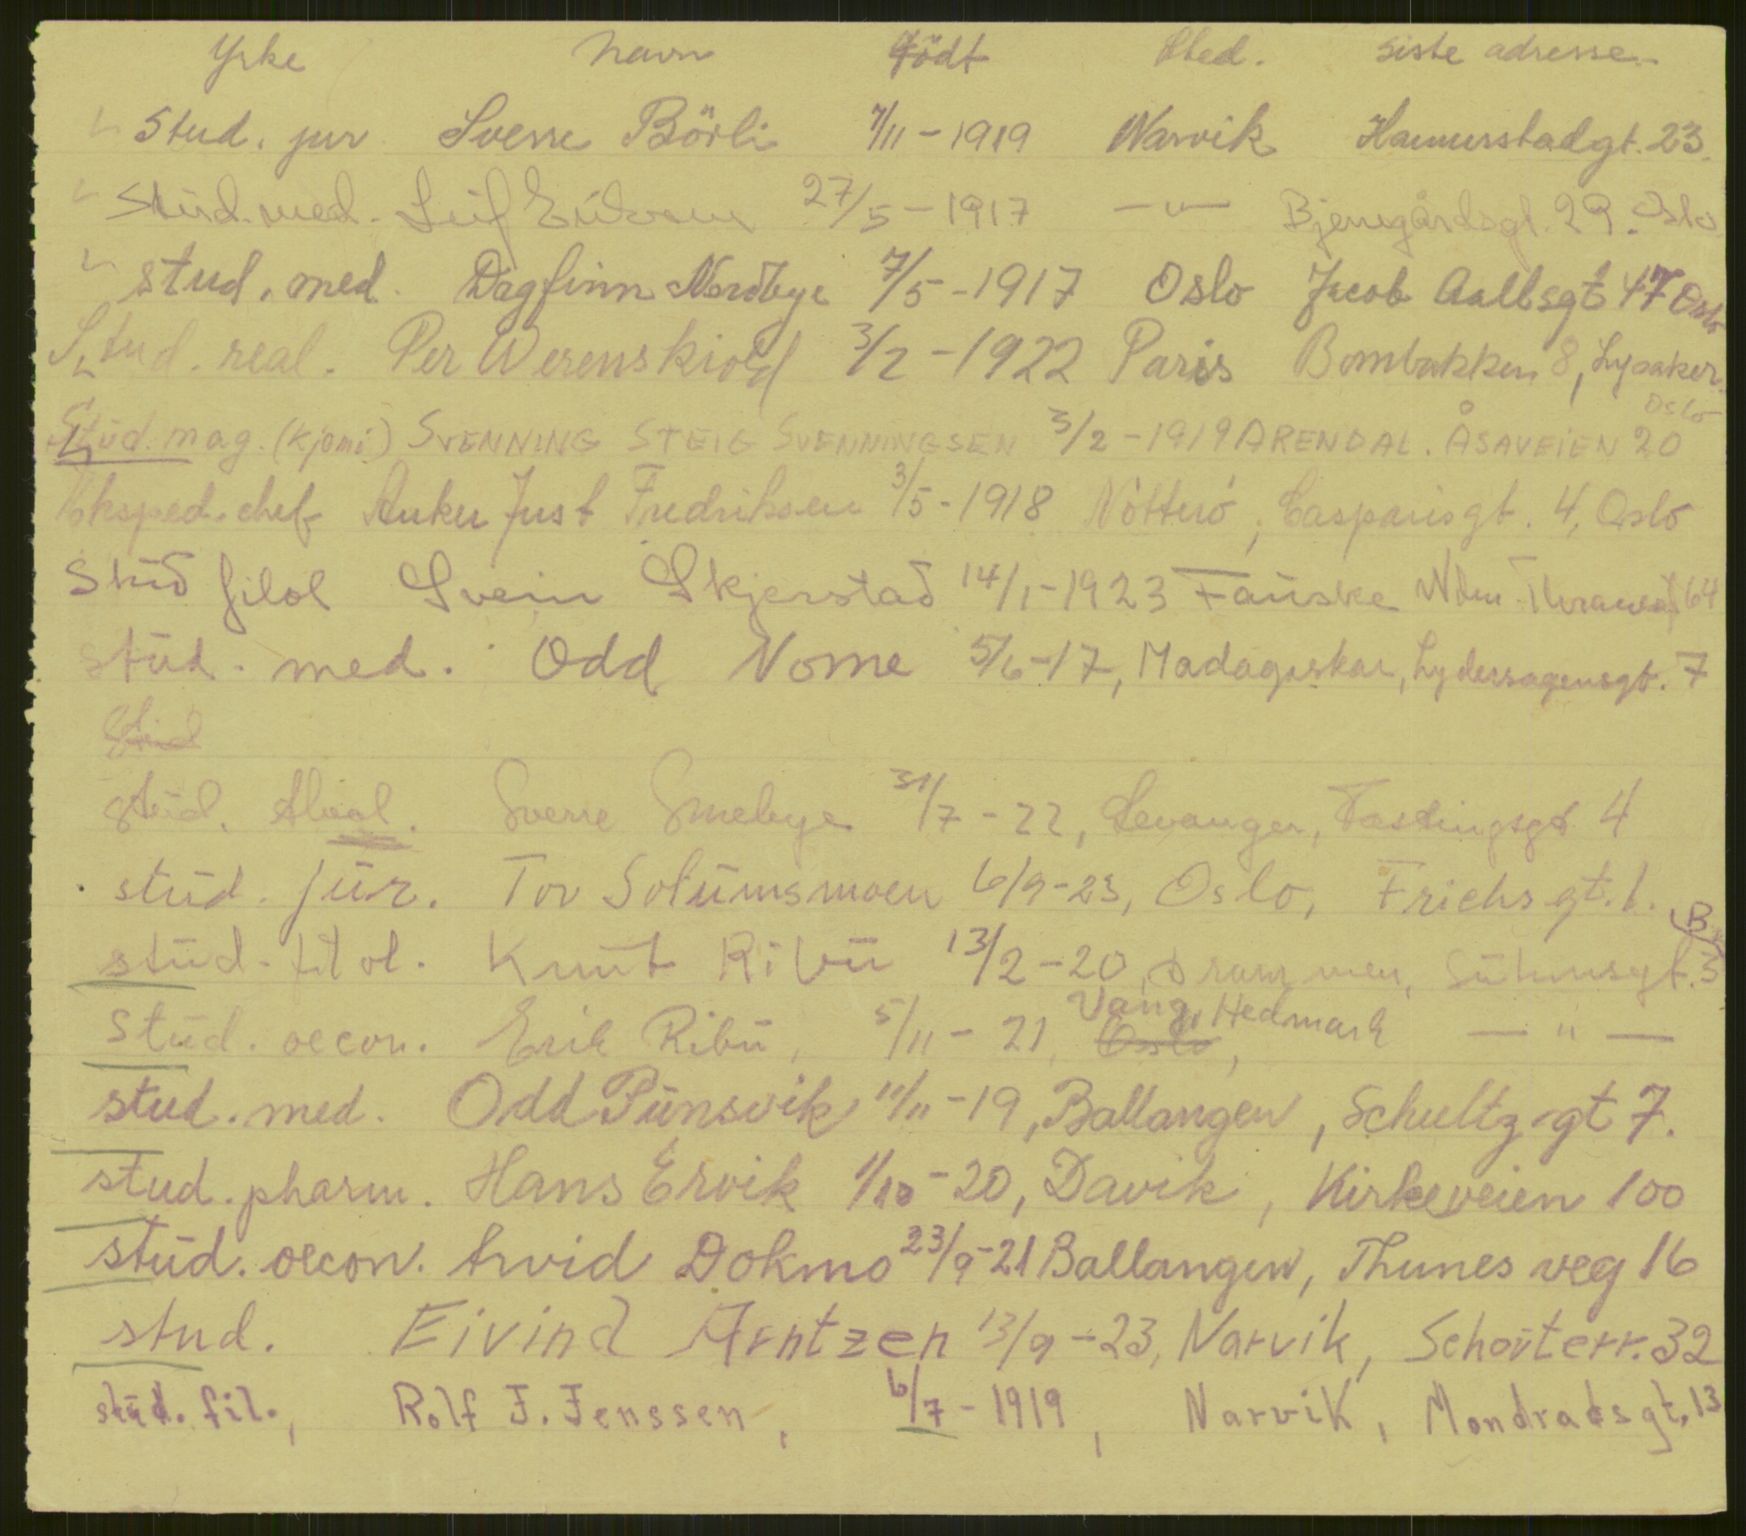 Yrke Navn Födt Sted. Siste adresse.
Stud. jur. Sverre Börli 7/11 - 1919 Narvik Hammerstadgt. 23.
Stud. med. Leif 27/5 - 1917 — " — Bjerregårdsgt. 29. Oslo
stud. med. Dagfinn Nordbye 7/5 - 1917 Oslo Jacob Aallsgt 47 Oslo
Stud. real. Per Werenskiold 3/2 - 1922 Paris Bombakken 8, Lysaker.
Stud. mag. (kjemi) SVENNING STEIG SVENNINGSEN 3/2 - 1919 ARENDAL. ÅSAVEIEN 20 Oslo
Eksped. chef Anker Just Fredriksen 3/5 - 1918 Nötterö, Casparisgt. 4, Oslo
Stud filol Svein Skjerstad 14/1 - 1923 Fauske Wilh. 64
stud. med. Odd Nome 5/6 - 17, Madagaskar, Lydersagensgt. 7
Stud
stud. Sverre Smebye 31/7 - 22, Levanger, Fastingsgt 4
stud. jur. Tor Solumsmoen 6/9 - 23, Oslo, Frichsgt. 1.
stud. filol. Knut Ribu 13/2 - 20, Drammen, Suhmsgt. 3 B
stud. oecon. Erik Ribu, 5/11 - 21, Oslo, Vang, Hedmark — " —
stud. med. Odd Punsvik 11/11 - 19, Ballangen, Schultz gt 7.
stud. pharm. Hans Ervik 1/10 - 20, Davik, Kirkeveien 100
stud. oecon. Arvid Dokmo 23/9 - 21 Ballangen, Thunes veg 16
stud. Eivind Arntzen 13/9 - 23, Narvik, Schouterr. 32
stud. fil., Rolf J. Jenssen, 6/7 - 1919, Narvik, Mondradsgt. 13